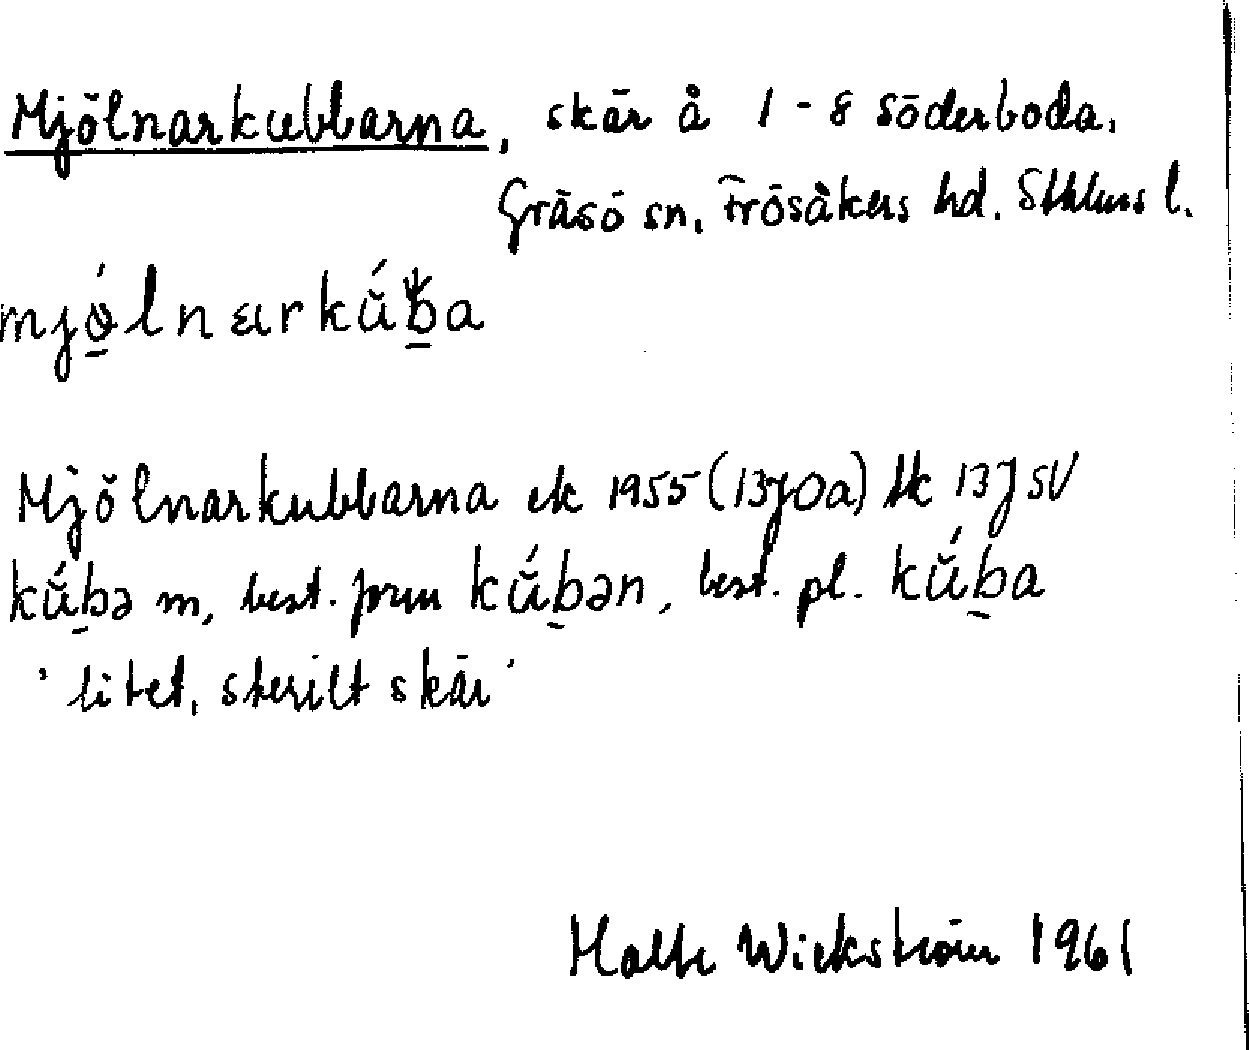 Mjölnarkubbarna, skär å 1-8 Söderboda,
Gräsö sn, Frösåkers hd. Sthlms l.
mjǿ̱lnarkǘḇa
Mjölnarkubbarna ek 1955 (13J0a) tk 13J SV
kŭ́ḇə m, best. form kŭ́ḇən, best. pl. kŭ́ḇa
'litet, sterilt skär'
Wickström 1961